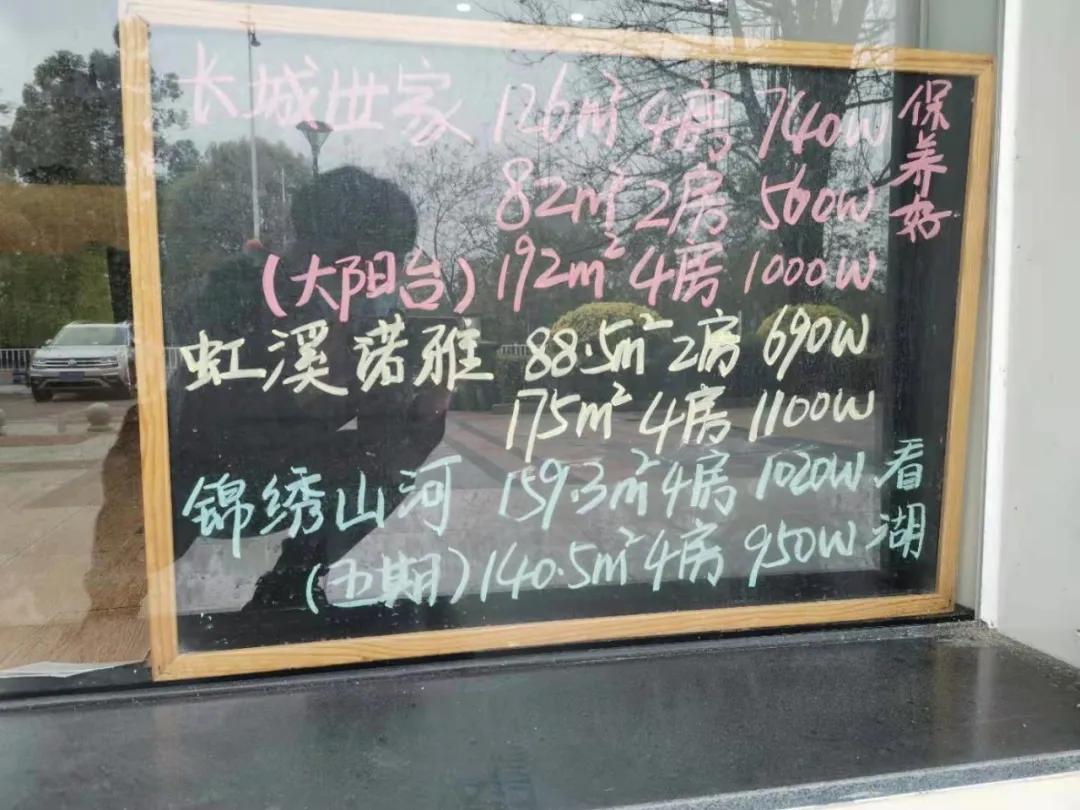 长城世家 126m² 4房 740W 保养好
82m² 2房 560W
(大阳台) 192m² 4房 1000W
虹溪诺雅 88.5m² 2房 690W
175m² 4房 1100W
锦绣山河 159.3m² 4房 1020W 看湖
(五期) 140.5m² 4房 950W